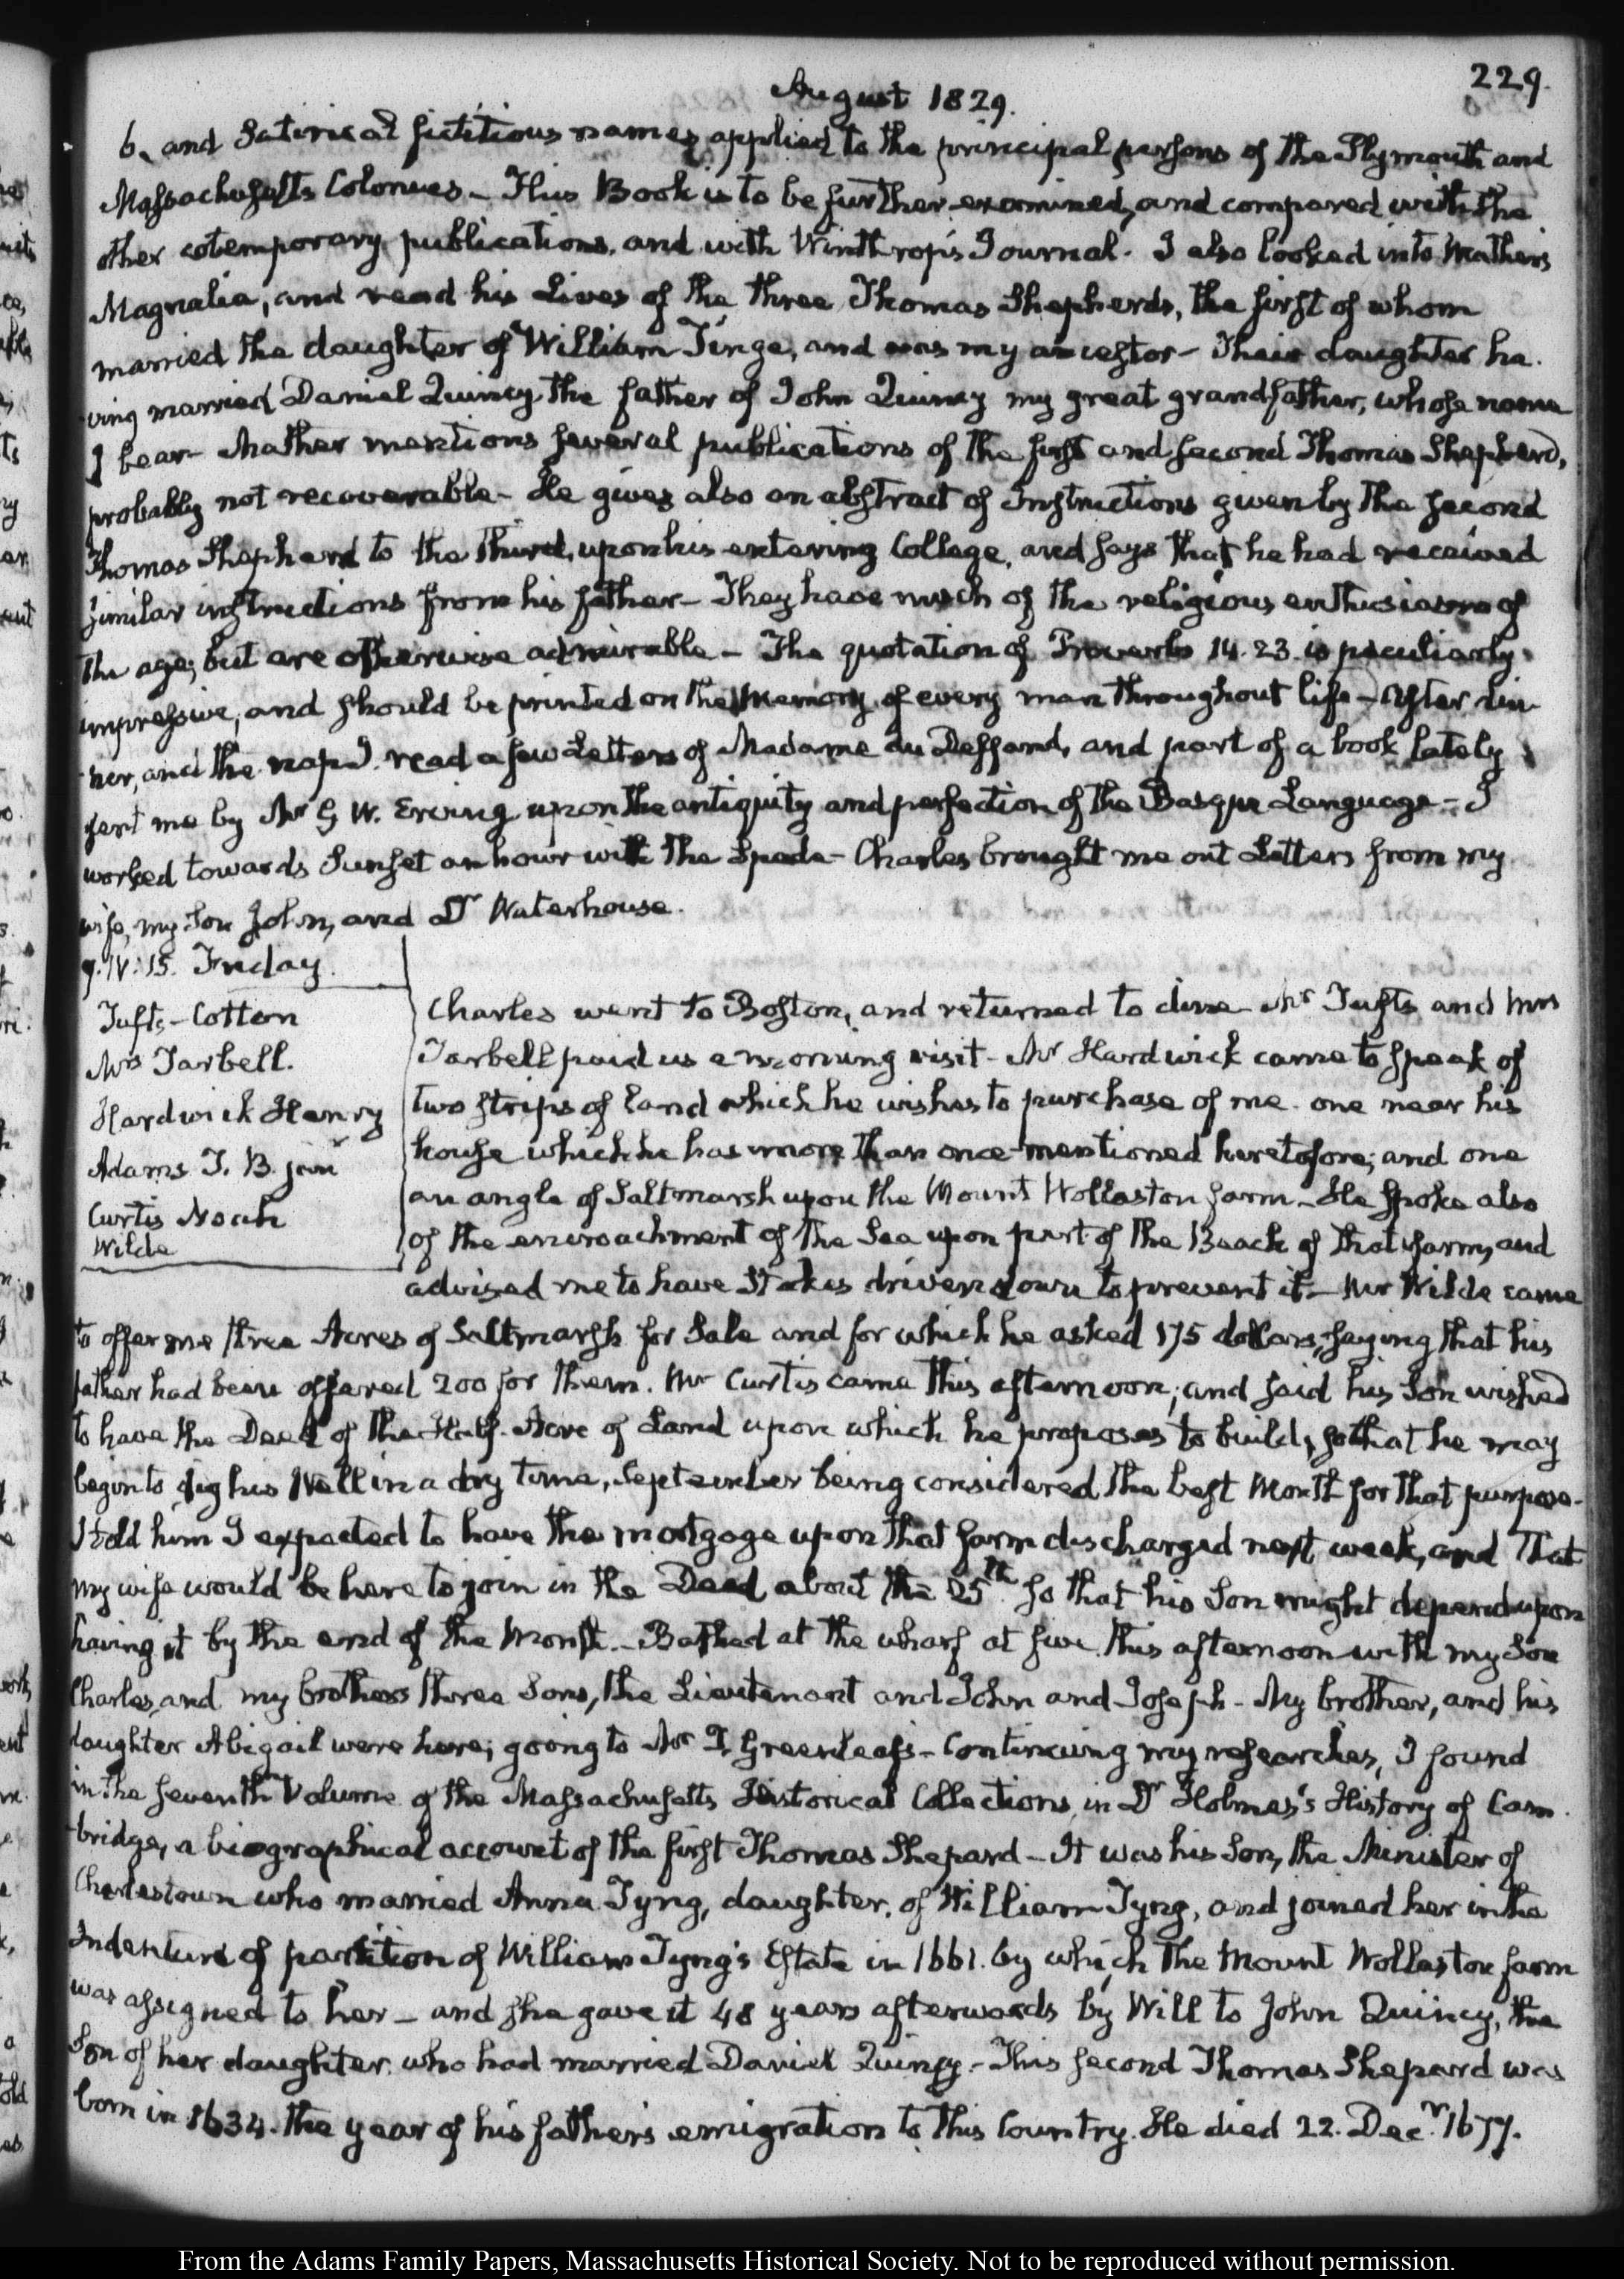 229.
August 1829.
6. and Satirical fictitious names applied to the principal persons of the Plymouth and
Massachusetts Colonies – This Book is to be further examined, and compared with the
other cotemporary publications, and with Winthrop's Journal. I also looked into Mather's
Magnalia, and read his Lives of the three Thomas Shepherds, the first of whom
married the daughter of William Tinge, and was my ancestor – Their daughter ha-
-ving married Daniel Quincy the father of John Quincy my great grandfather, whose name
I bear – Mather mentions several publications of the first and second Thomas Shepherd,
probably not recoverable – He gives also an abstract of Instructions given by the second
Thomas Shepherd to the third, upon his entering College, and says that he had received
similar instructions from his father – They have much of the religious enthusiasm of
the age, but are otherwise admirable – The quotation of Proverbs 14.23. is peculiarly
impressive, and should be printed on the memory of every man throughout life – After din-
-ner, and the nap I read a few Letters of Madame du Deffand, and part of a book lately
sent me by Mr G. W. Erving upon the antiquity and perfection of the Basque Language – I
worked towards Sunset an hour with the Spade – Charles brought me out Letters from my
wife, my Son John, and Dr Waterhouse.
7. IV:15. Friday.
Tufts – Cotton
Mrs Tarbell.
Hardwick Henry
Adams T. B. junr
Curtis Noah
Wilde
Charles went to Boston, and returned to dine – Mr Tufts and Mrs
Tarbell paid us a morning visit – Mr Hardwick came to speak of
two strips of land which he wishes to purchase of me. one near his
house which he has more than once mentioned heretofore; and one
an angle of Saltmarsh upon the Mount Wollaston farm – He spoke also
of the encroachment of the Sea upon part of the Beach of that farm, and
advised me to have Stakes driven down to prevent it – Mr Wilde came
to offer me three Acres of Saltmarsh for Sale and for which he asked 175 dollars, saying that his
father had been offered 200 for them. Mr Curtis came this afternoon; and said his Son wished
to have the Deed of the Half-Acre of Land upon which he proposes to build, so that he may
begin to dig his Well in a dry time, September being considered the best Month for that purpose –
I told him I expected to have the mortgage upon that farm discharged next week, and that
my wife would be here to join in the Deed about the 25th so that his Son might depend upon
having it by the end of the Month. – Bathed at the wharf at five this afternoon with my Son
Charles, and my brothers three Sons, the Lieutenant and John and Joseph – My brother, and his
daughter Abigail were here; going to Mr T. Greenleaf's – Continuing my researches, I found
in the seventh Volume of the Massachusetts Historical Collections, in Dr Holmes's History of Cam-
-bridge, a biographical account of the first Thomas Shepard – It was his Son, the Minister of
Charlestown who married Anna Tyng, daughter of William Tyng, and joined her in the
Indenture of partition of William Tyng's Estate in 1661. by which the Mount Wollaston farm
was assigned to her – and she gave it 48 years afterwards by Will to John Quincy, the
Son of her daughter who had married Daniel Quincy – This second Thomas Shepard was
born in 1634. the year of his father's emigration to this Country. He died 22. Decr 1677.
From the Adams Family Papers, Massachusetts Historical Society. Not to be reproduced without permission.